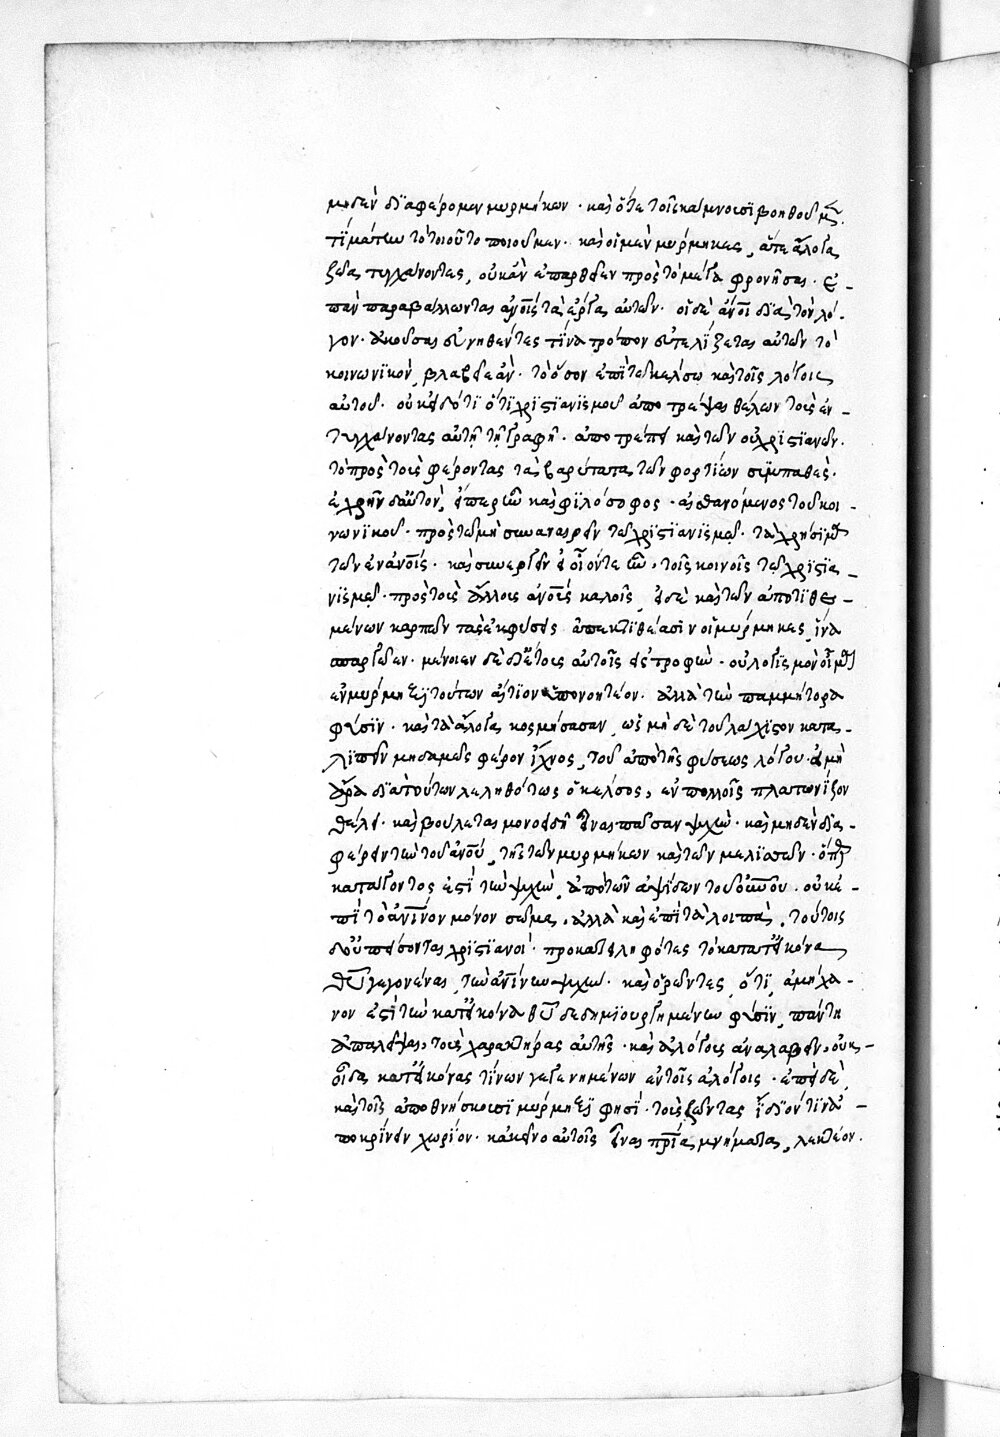 μηδὲν διαφέρομεν μυρμήκων· καὶ ὅτε τοῖς κάμνουσι βοηθοῦμεν
τῷ μάτην τὸ τοιοῦτο ποιοῦμεν· καὶ οἱ μὲν μύρμηκες, ἅτε ἄλογα
ζῶα τυγχάνοντες, οὐκ ἂν ἐπαρθεῖεν πρὸς τὸ μέγα φρονῆσαι· ἐ-
πὰν παραβάλλωνται ἀνοις τὰ ἔργα αὐτῶν· οἱ δὲ ἄνοι διὰ τὸν λό-
γον· ἀκοῦσαι δυνηθέντες τίνα τρόπον εὐτελίζεται αὐτῶν τὸ
κοινωνικὸν, βλαβεῖεν ἂν· τὸ ὅσον ἐπὶ τῶ κέλσω καὶ τοῖς λόγοις
αὐτοῦ· οὐκ εἶδότι ὅτι χριστιανισμοῦ ἀποτρέψαι θέλων τοὺς ἐν-
τυγχάνοντας αὐτῇ τῇ γραφῇ· ἀποτρέπει καὶ τῶν οὐ χριστιανῶν·
τὸ πρὸς τοὺς φέροντας τὰ βαρύτατα τῶν φορτίων συμπαθὲς·
ἐχρῆν δ' αὐτὸν, εἴπερ ἦν καὶ φιλόσοφος· αἰσθανόμενος τοῦ κοι-
νωνικοῦ· πρὸς τῶ μὴ συναναιρεῖν τῶ χριστιανισμῶ· τὰ χρήσιμα
τῶν ἐν ἀνοις· καὶ συνεργεῖν εἰ οἷόν τε ἦν, τοῖς κοινοῖς τῶ χριστια-
νισμῶ· πρὸς τοὺς ἄλλους ἀνους καλοῖς, εἰ δὲ καὶ τῶν ἀποτιθε-
μένων καρπῶν τὰς ἐκφύσεις ἀπεκτιθέασιν οἱ μύρμηκες, ἵνα
σπαργῶεν· μένοιεν δὲ δι' ἔτους αὐτοῖς εἰς τροφὴν· οὐ λογισμὸν εἶναι
ἐν μύρμηξι τούτων αἴτιον ὑπονοητέον· ἀλλὰ τὴν παμμήτορα
φύσιν· καὶ τὰ ἄλογα κοσμήσασαν, ὡς μηδὲ τοὐλάχιστον κατα-
λιπεῖν μηδαμῶς φέρον ἴχνος, τοῦ ἀπὸ τῆς φύσεως λόγου· εἰ μὴ
ἄρα διὰ τούτων λεληθότως ὁ κέλσος, ἐν πολλοῖς πλατωνίζειν
θέλει· καὶ βούλεται μονοειδῆ εἶναι πᾶσαν ψυχὴν· καὶ μηδὲν δια-
φέρειν τὴν τοῦ ἀνου, τῆς τῶν μυρμήκων καὶ τῶν μελισσῶν· ὅπερ
κατάγοντός ἐστι τὴν ψυχὴν, ἀπὸ τῶν ἁψίδων τοῦ οὐνου· οὐκ ἐ-
πὶ τὸ ἀνινον μόνον σῶμα, ἀλλὰ καὶ ἐπὶ τὰ λοιπὰ, τούτοις
δ' οὐ πείσονται χριστιανοὶ· προκατειληφότες τὸ κατ' εἰκόνα
θυ γεγονέναι, τὴν ἀνινην ψυχὴν· καὶ ὁρῶντες, ὅτι, ἀμήχα-
νον ἐστὶ τὴν κατ' εἰκόνα θυ δεδημιουργημένην φύσιν, πάντη
ἀπαλεῖψαι, τοὺς χαρακτῆρας αὐτῆς· καὶ ἀλόγους ἀναλαβεῖν, οὐκ
οἶδα κατ' εἰκόνας τίνων γεγενημένων ἐν τοῖς ἀλόγοις· ἐπεὶ δὲ,
καὶ τοῖς ἀποθνήσκουσι μύρμηξι φησὶ· τοὺς ζῶντας ἴδιόν τι ἀ-
ποκρίνειν χωρίον· κἀκεῖνο αὐτοῖς εἶναι πρια μνήματα, λεκτέον·